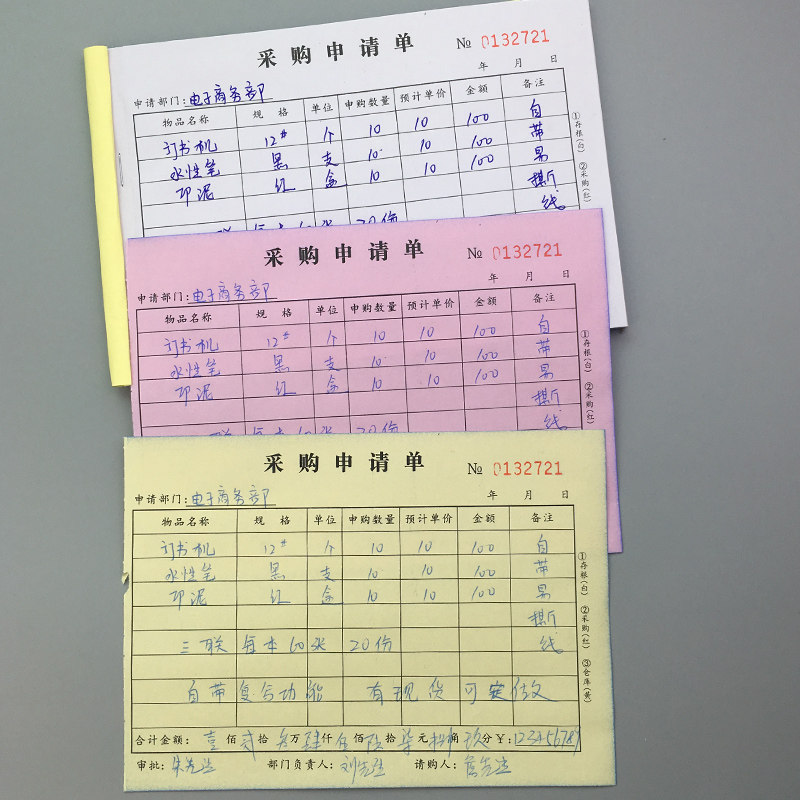 采购申请单 № 0132721
年 月 日
申请部门:电子商务部
物品名称 规格 单位 申购数量 预计单价 金额 备注
订书机 12# 个 10 10 100 自
水性笔 黑 支 10 10 100 带
印泥 红 盒 10 10 100 易
撕
线
①存根(白) ②采购(红)
采购申请单 № 0132721
年 月 日
申请部门:电子商务部
物品名称 规格 单位 申购数量 预计单价 金额 备注
订书机 12# 个 10 10 100 自
水性笔 黑 支 10 10 100 带
印泥 红 盒 10 10 100 易
撕
线
①存根(白) ②采购(红)
采购申请单 № 0132721
年 月 日
申请部门:电子商务部
物品名称 规格 单位 申购数量 预计单价 金额 备注
订书机 12# 个 10 10 100 自
水性笔 黑 支 10 10 100 带
印泥 红 盒 10 10 100 易
撕
三联 每本60张 20份 线
自带复写功能 有现货可定做
①存根(白) ②采购(红) ③仓库(黄)
合计金额: 壹佰贰拾叁万肆仟伍佰陆拾柒元捌角玖分¥:123456789
审批: 朱先生 部门负责人: 刘先生 请购人: 詹先生